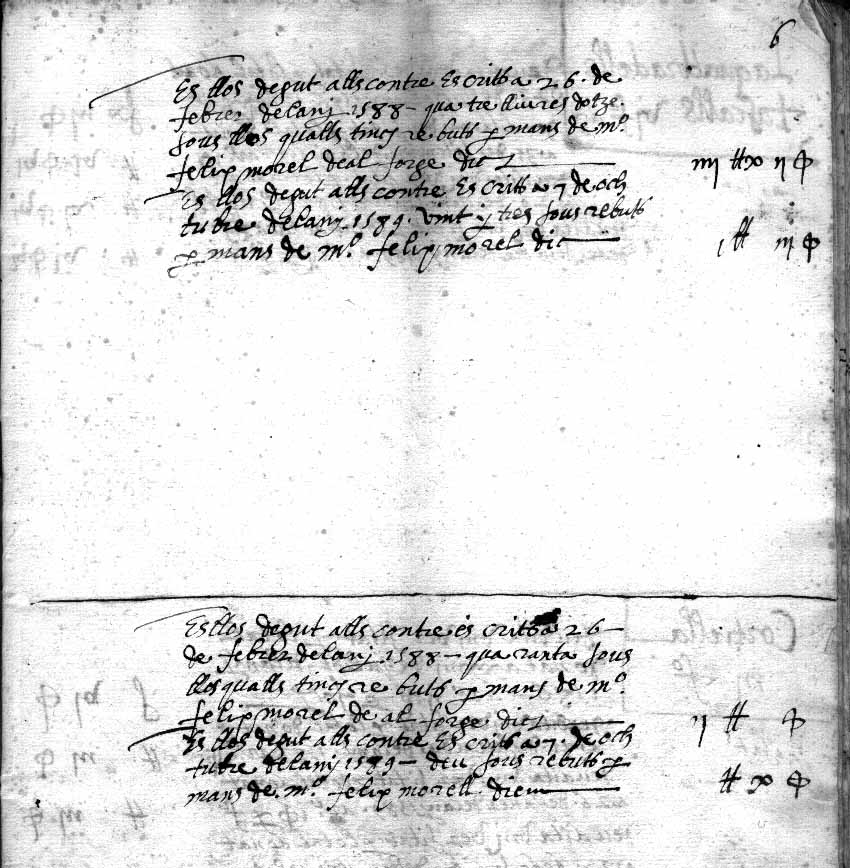 6
Es llos degut alls contre Escrits a 26. de
febrer delany 1588 - quatre lliures dotze
sous llos qualls tinch rebuts p mans de m.º
felip morel deal forge dic iiij ll x ij ꝑ
Es llos degut alls contre Escrits a 7 de och
tubre delany 1589. vint y tres sous rebuts
p mans de m.º felip morel dic j ll iij ꝑ
Es llos degut alls contre es crits a 26
de febrer delany 1588 - quaranta sous
llos qualls tinch re buts p mans de m.º
felip morel de al forge dic ij ll ꝑ
Es llos degut alls contre Escrits a 7. de och
tubre delany 1589 - deu sous rebuts p
mans de m.º felip morell dic ll x ꝑ
Corbella